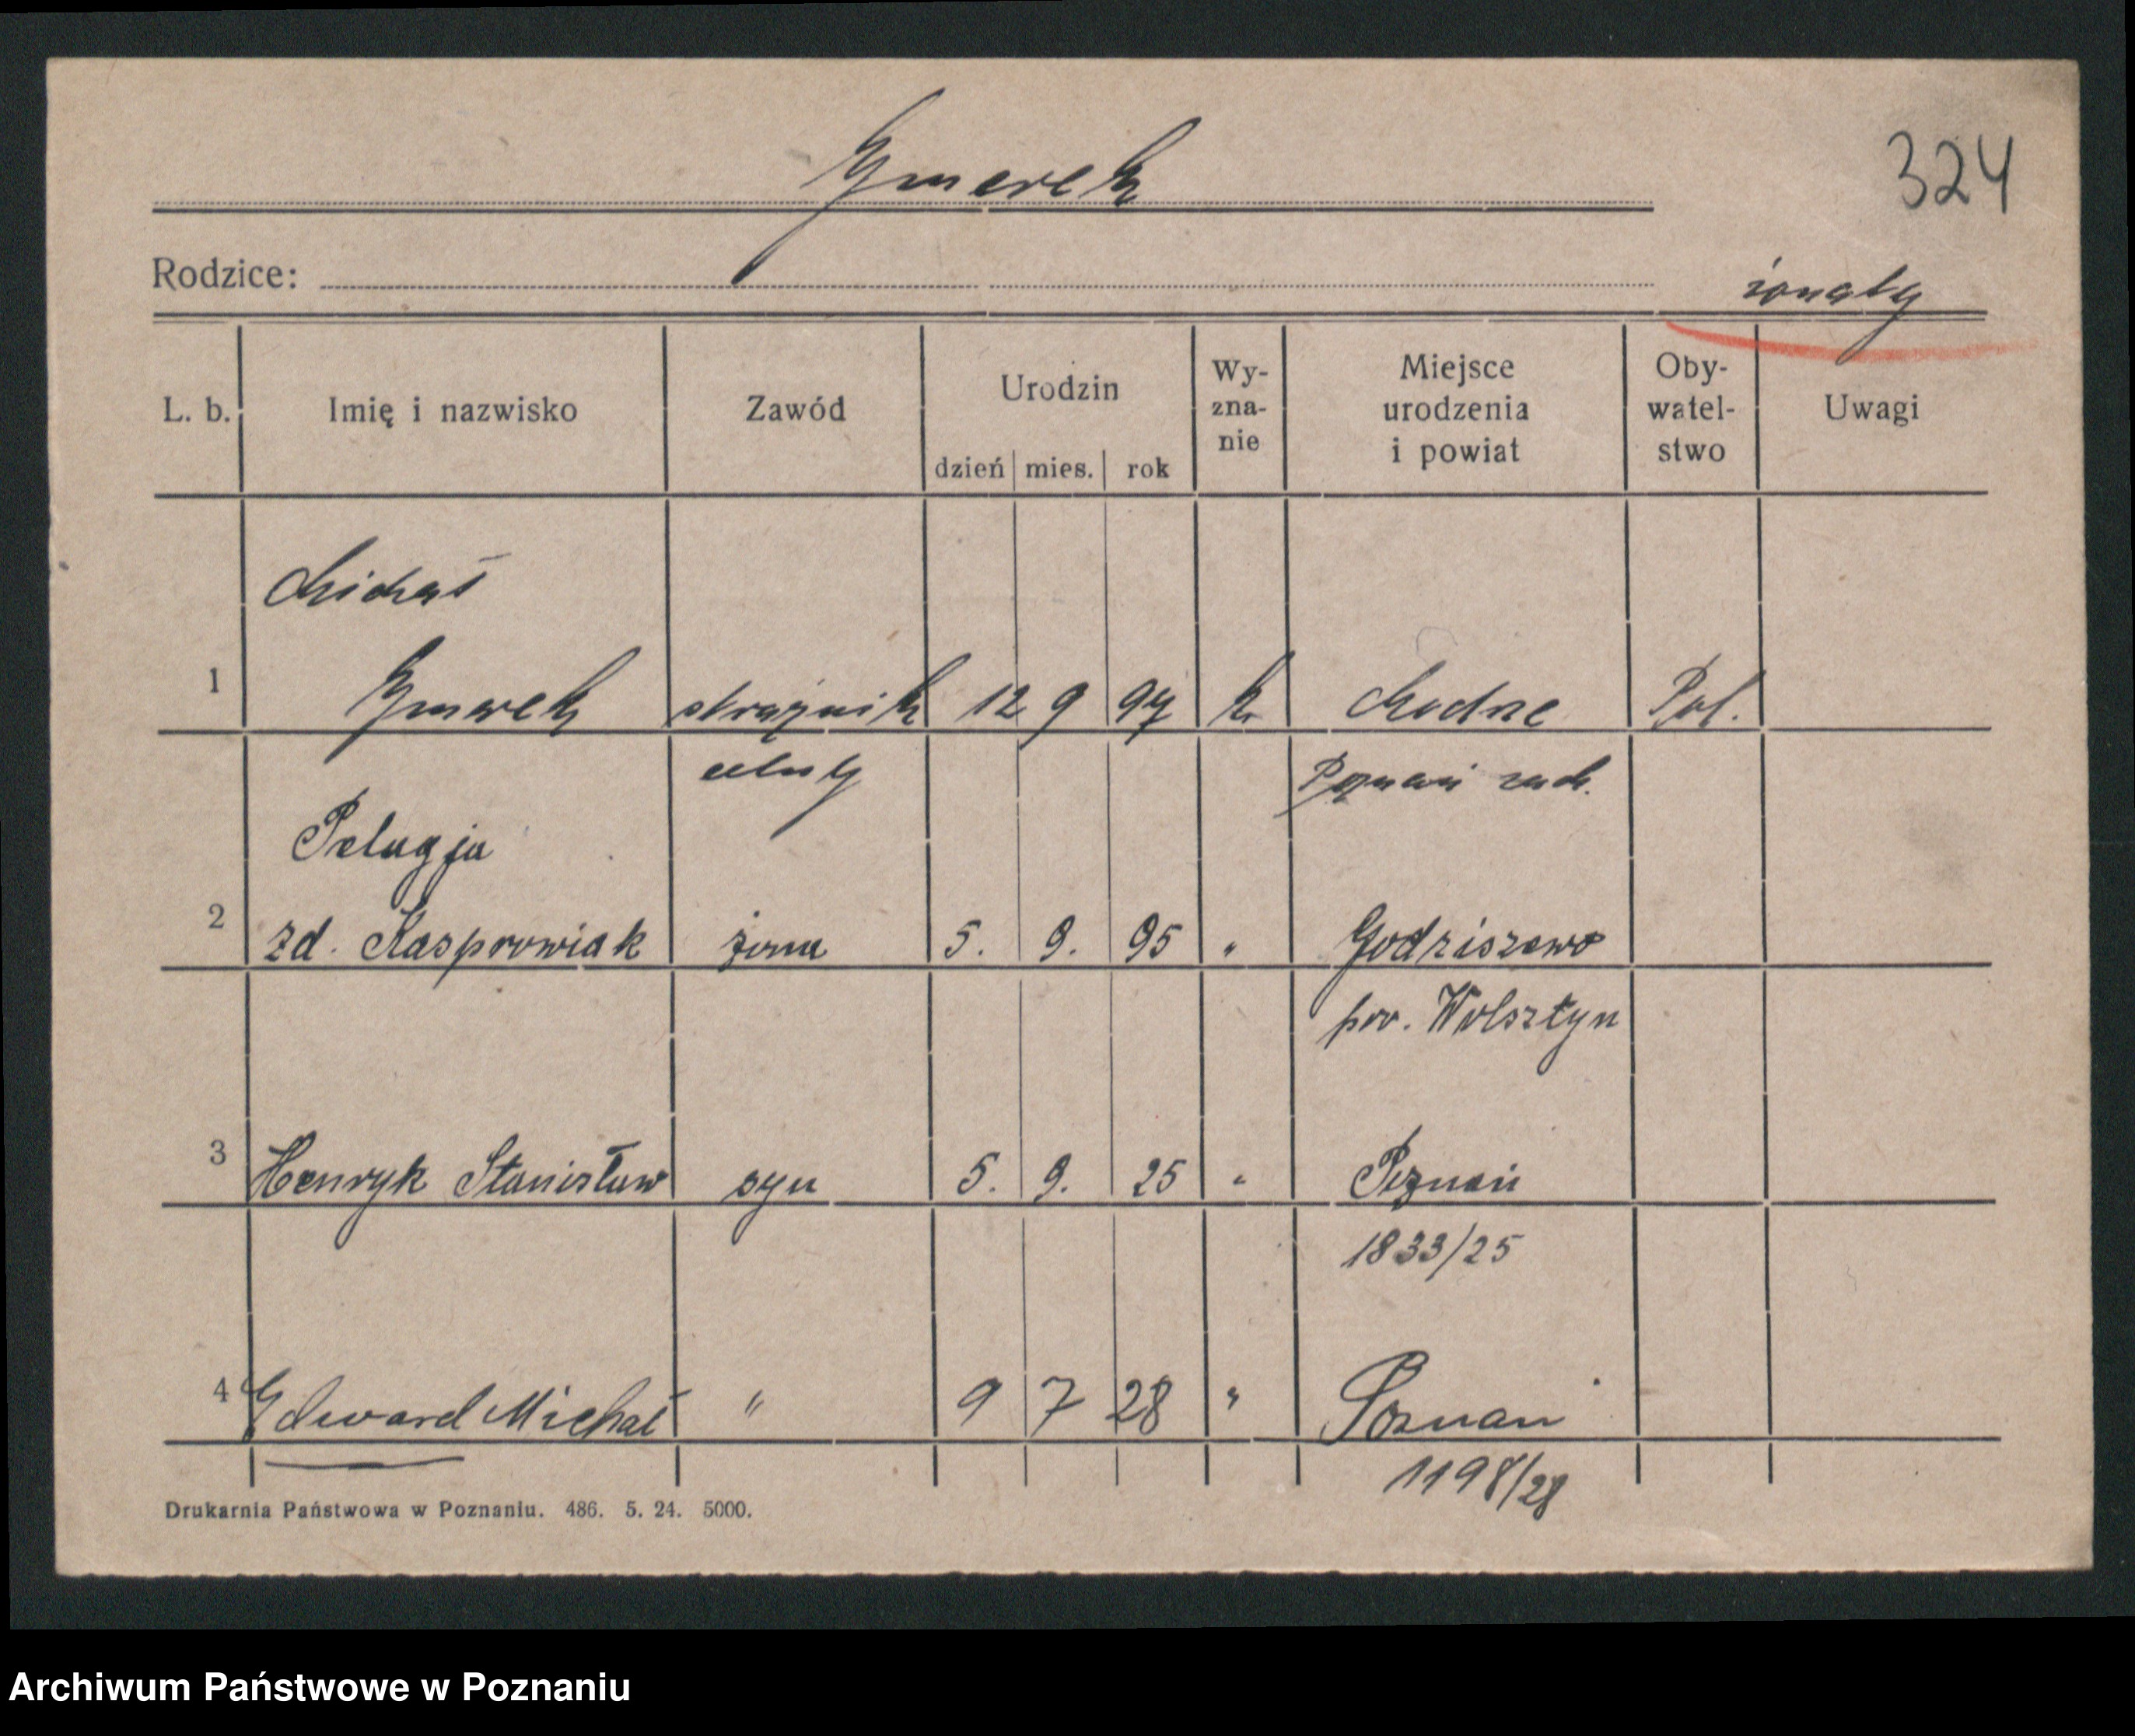 Gmerek
324
Rodzice:
żonaty
L. b. Imię i nazwisko Zawód Urodzin dzień mies. rok Wy-zna-nie Miejsce urodzenia i powiat Oby-watel-stwo Uwagi
Michał
1 Gmerek strażnik 12 9 97 k. Modrze Pol.
celny Poznań zach.
Pelagja
2 zd. Kasprowiak żona 5. 9. 95 " Godziszewo
pow. Wolsztyn
3 Henryk Stanisław syn 5. 9. 25 " Poznań
1833/25
4 Edward Michał " 9 7 28 " Poznań
1198/28
Drukarnia Państwowa w Poznaniu. 486. 5. 24. 5000.
Archiwum Państwowe w Poznaniu